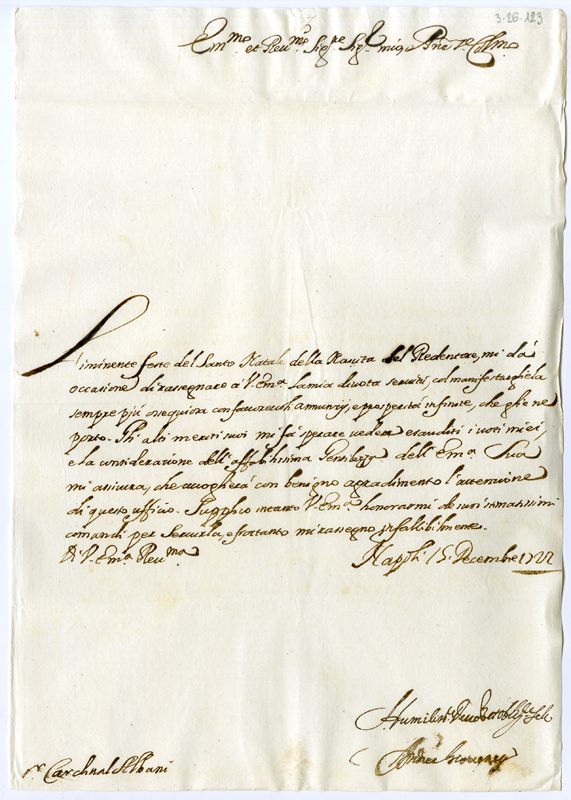 3-26-123
Em.mo et Reu.mo Sig.re Sig.r mio, e Pne Col.mo
L'iminente feste del Santo Natale della Nascita del Redentore, mi dà
occasione di rassegnare à V. Em.a la mia diuota seruitù, col manifestarghi la
sempre più ossequiosa con fauoreuoli annunzij, e prosperità infinite, che ghe ne
porto. Gh' alti meriti suoi mi fà sperare uedere esauditi i uoti miei,
e la considerazione dell' affabilissima Gentilezza dell' Em.a Sua
mi assicura, che accogherà con benigno agradimento l'attenzione
di questo ufficio. Supplico intanto V. Em.a honorarmi de suoi stimatissimi
comandi per Seruirla, e frattanto mi rassegno infallibilmente.
Di V. Em.a Reu.ma
Napoli 15. Decembre 1722
Humiliss.
Andrea
Cardinal Albani